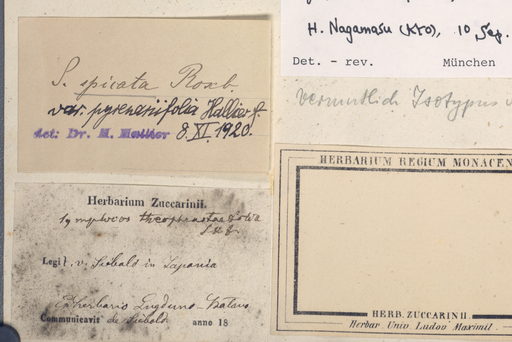 H. Nagamasu (KYO), 10 Sep.
Det. - rev. München
Vermutlich Isotypus
S. spicata Roxb.
var. pyrenariifolia Hallier f.
det: Dr. H. Hallier 8.XI.1920.
HERBARIUM REGIUM MONACEN
HERB. ZUCCARINII.
Herbar. Univ. Ludov. Maximil.
Herbarium Zuccarinii.
Symplocos theophrastaefolia
S. & Z.
Legit. v. Siebold in Japonia
Ex herbario Lugduno-Batavo
Communicavit de Siebold anno 18